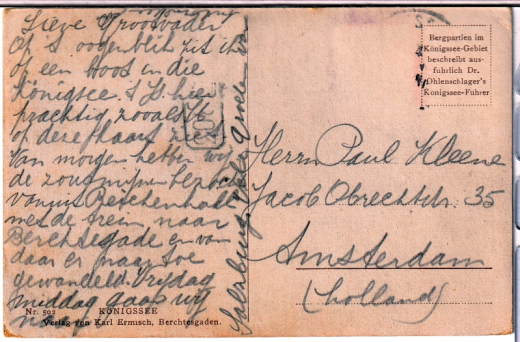 Lieve Grootvader
Op 't oogenblik zit ik
op een boot in die
Königsee. 't Is hier
prachtig, zooals U
op deze kaart ziet.
Van morgen hebben wij
de zoutmijnen bezocht
van uit Reichenhall
met de trein naar
Berchtegade en van
daar er naar toe
gewandeld. Vrijdag
middag gaan wij
naar
Salzburg. Vele
Nr. 502 KÖNIGSSEE
Verlag von Karl Ermisch, Berchtesgaden.
Bergpartien im
Königssee-Gebiet
beschreibt aus-
führlich Dr.
Ohlenschlager's
Konigssee-Führer
Herrn Paul Kleene
Jacob Obrechtstr. 35
Amsterdam
(Holland)